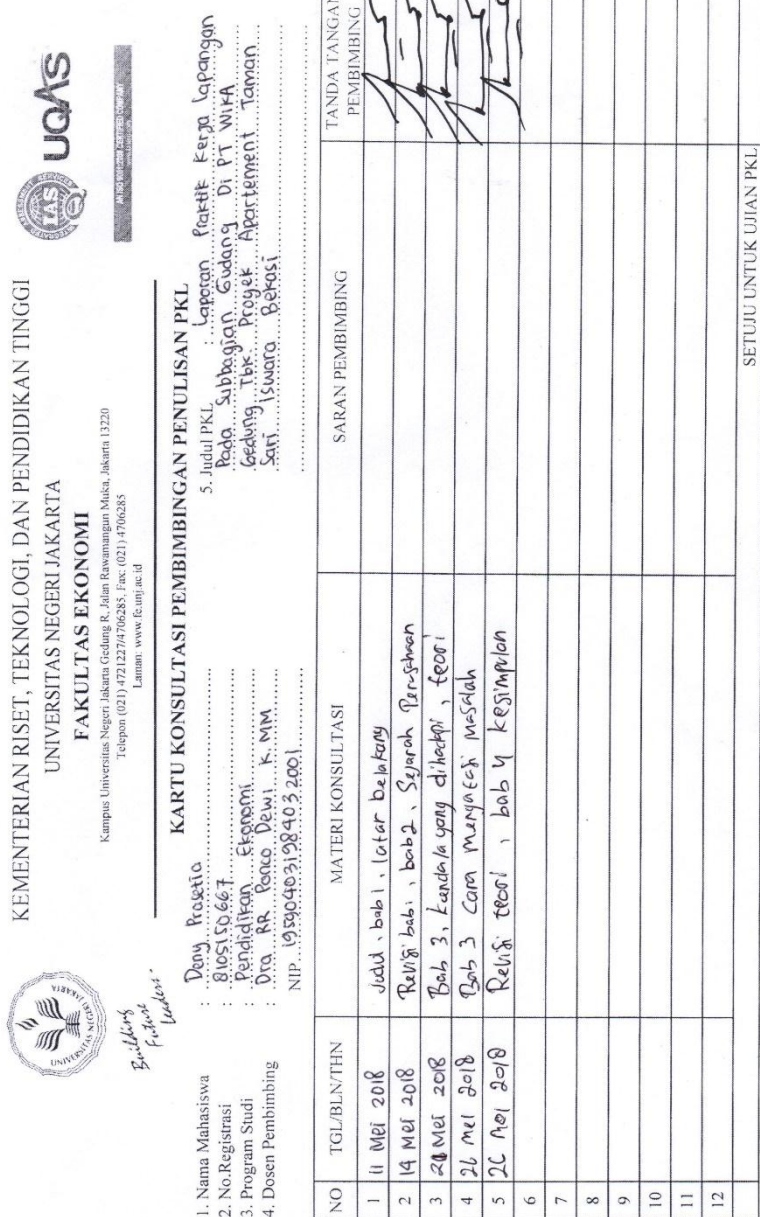 KEMENTERIAN RISET, TEKNOLOGI, DAN PENDIDIKAN TINGGI
UNIVERSITAS NEGERI JAKARTA
FAKULTAS EKONOMI
Kampus Universitas Negeri Jakarta Gedung R, Jalan Rawamangun Muka, Jakarta 13220
Telepon (021) 4721227/4706285, Fax: (021) 4706285
Laman: www.fe.unj.ac.id
Building
Future
Leaders
IAS
UQAS
KARTU KONSULTASI PEMBIMBINGAN PENULISAN PKL
1. Nama Mahasiswa : Deny Prasetia
2. No.Registrasi : 8105150667
3. Program Studi : Pendidikan Ekonomi
4. Dosen Pembimbing : Dra RR Ponco Dewi K. MM
NIP. 195904031984032001
5. Judul PKL : Laporan Praktik Kerja Lapangan
Pada Subbagian Gudang Di PT WIKA
Gedung Tbk. Proyek Apartement Taman
Sari Iswara Bekasi
NO TGL/BLN/THN MATERI KONSULTASI SARAN PEMBIMBING TANDA TANGAN PEMBIMBING
1 11 Mei 2018 Judul, bab 1, latar belakang
2 14 Mei 2018 Revisi bab 1, bab 2, Sejarah Perusahaan
3 Mei 2018 Bab 3, kendala yang dihadapi, teori
4 Mei 2018 Bab 3 Cara mengatasi masalah
5 Mei 2018 Revisi teori, bab 4 kesimpulan
6
7
8
9
10
11
12
SETUJU UNTUK UJIAN PKL